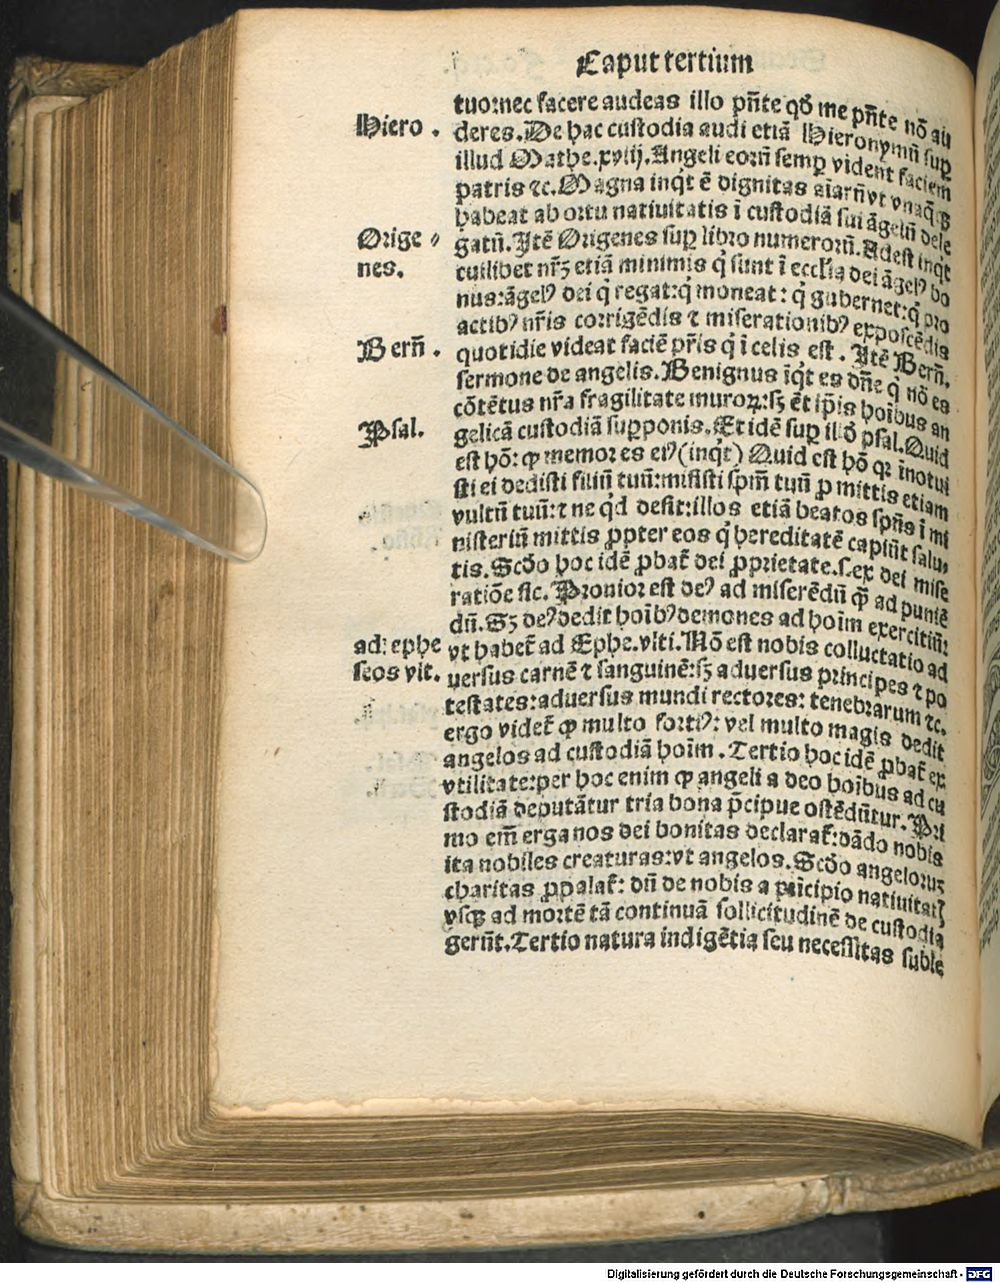 Caput tertium
tuo: nec facere audeas illo pn̄te qď me pn̄te nō au
Hiero . deres. De hac custodia audi etiā Hieronymū suꝑ
illud Mathe. xviij. Angeli eoꝛū semꝑ vident faciem
patris ⁊c. Magna inq̇t ē dignitas aīarū vt vnaq̄qꝫ
habeat ab ortu natiuitatis ī custodiā sui āgelū dele
Orige⸗ gatū. Itē Origenes suꝑ libro numeroꝛū. Adest inq̇t
nes. cuilibet nr̄ꝫ etiā minimis q̇ sunt ī eccl̄ia dei āgelꝰ bo
nus: āgelꝰ dei q̇ regat: q̇ moneat: q̇ gubernet: q̇ pro
actibꝰ nr̄is corrigēdis ⁊ miserationibꝰ exposcēdis
Bern̄ . quotidie videat faciē pr̄is q̇ ī celis est. Itē Bern̄.
sermone de angelis. Benignus īq̇t es dn̄e q̇ nō es
cōtētus nr̄a fragilitate muroꝝ: sꝫ ēt ip̄is hoībus an
Psal. gelicā custodiā suꝑponis. Et idē suꝑ illď psal. Quid
est hō: ꝙ memor es eiꝰ (inq̇t) Quid est hō qꝛ īnotui
sti ei dedisti filiū tuū: misisti sp̄m̄ tuū ꝓmittis etiam
vultū tuū: ⁊ ne q̇d desit: illos etiā beatos sp̄ūs ī mi
nisteriū mittis ꝓpter eos q̇ hereditatē capiūt salu⸗
tis. Scďo hoc idē ꝓbat̄ dei ꝓprietate. s. ex dei mise
ratiōe sic. Pronior est deꝰ ad miserēdū q̄ꝫ ad puniē
dū. Sꝫ deꝰ dedit hoībꝰ demones ad hoīm exercitiū:
ad: ephe vt habet̄ ad Ephe. vlti. Nō est nobis colluctatio ad
seos vlt. uersus carnē ⁊ sanguinē: sꝫ aduersus principes ⁊ po
testates: aduersus mundi rectores: tenebrarum ⁊c.
ergo videt̄ ꝙ multo fortiꝰ: vel multo magis dedit
angelos ad custodiā hoīm . Tertio hoc idē ꝓbat̄ ex
vtilitate: per hoc enim ꝙ angeli a deo hoībus ad cu
stodiā deputātur tria bona p̄cipue ostēdūtur. Pri
mo em̄ erga nos dei bonitas declarat̄: dādo nobis
ita nobiles creaturas: vt angelos. Scďo angelorus
charitas ꝓpalat̄: dū de nobis a prīcipio natiuitatꝭ
vsqꝫ ad mortē tā continuā sollicitudinē de custodia
gerūt. Tertio natura indigētia seu necessitas suble
Digitalisierung gefördert durch die Deutsche Forschungsgemeinschaft - DFG